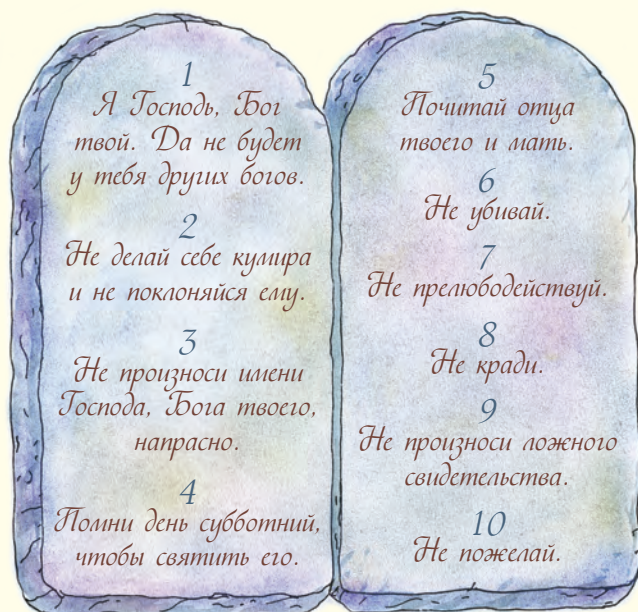 1
Я Господь, Бог
твой. Да не будет
у тебя других богов.
2
Не делай себе кумира
и не поклоняйся ему.
3
Не произноси имени
Господа, Бога твоего,
напрасно.
4
Помни день субботний,
чтобы святить его.
5
Почитай отца
твоего и мать.
6
Не убивай.
7
Не прелюбодействуй.
8
Не кради.
9
Не произноси ложного
свидетельства.
10
Не пожелай.